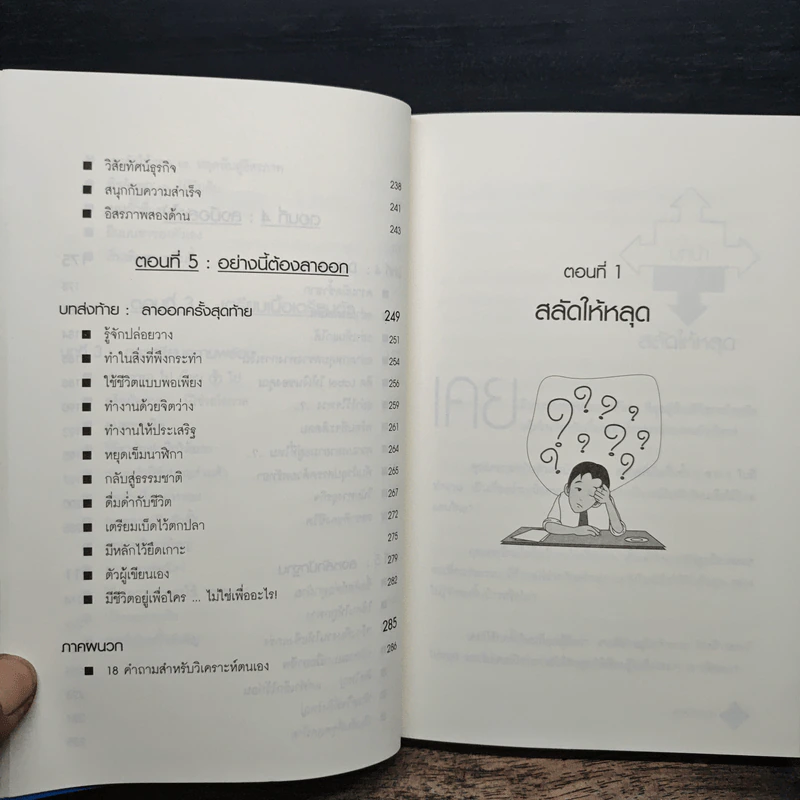 วิสัยทัศน์ธุรกิจ 238
สนุกกับความสำเร็จ 241
อิสรภาพสองด้าน 243
ตอนที่ 5 : อย่างนี้ต้องลาออก
บทส่งท้าย : ลาออกครั้งสุดท้าย 249
รู้จักปล่อยวาง 251
ทำในสิ่งที่พึงกระทำ 254
ใช้ชีวิตแบบพอเพียง 256
ทำงานด้วยจิตว่าง 259
ทำงานให้ประเสริฐ 261
หยุดเข็มนาฬิกา 264
กลับสู่ธรรมชาติ 265
ดื่มด่ำกับชีวิต 267
เตรียมเบ็ดไว้ตกปลา 272
มีหลักไว้ยึดเกาะ 275
ตัวผู้เขียนเอง 279
มีชีวิตอยู่เพื่อใคร ... ไม่ใช่เพื่ออะไร! 282
ภาคผนวก 285
18 คำถามสำหรับวิเคราะห์ตนเอง 286
ตอนที่ 1
สลัดให้หลุด